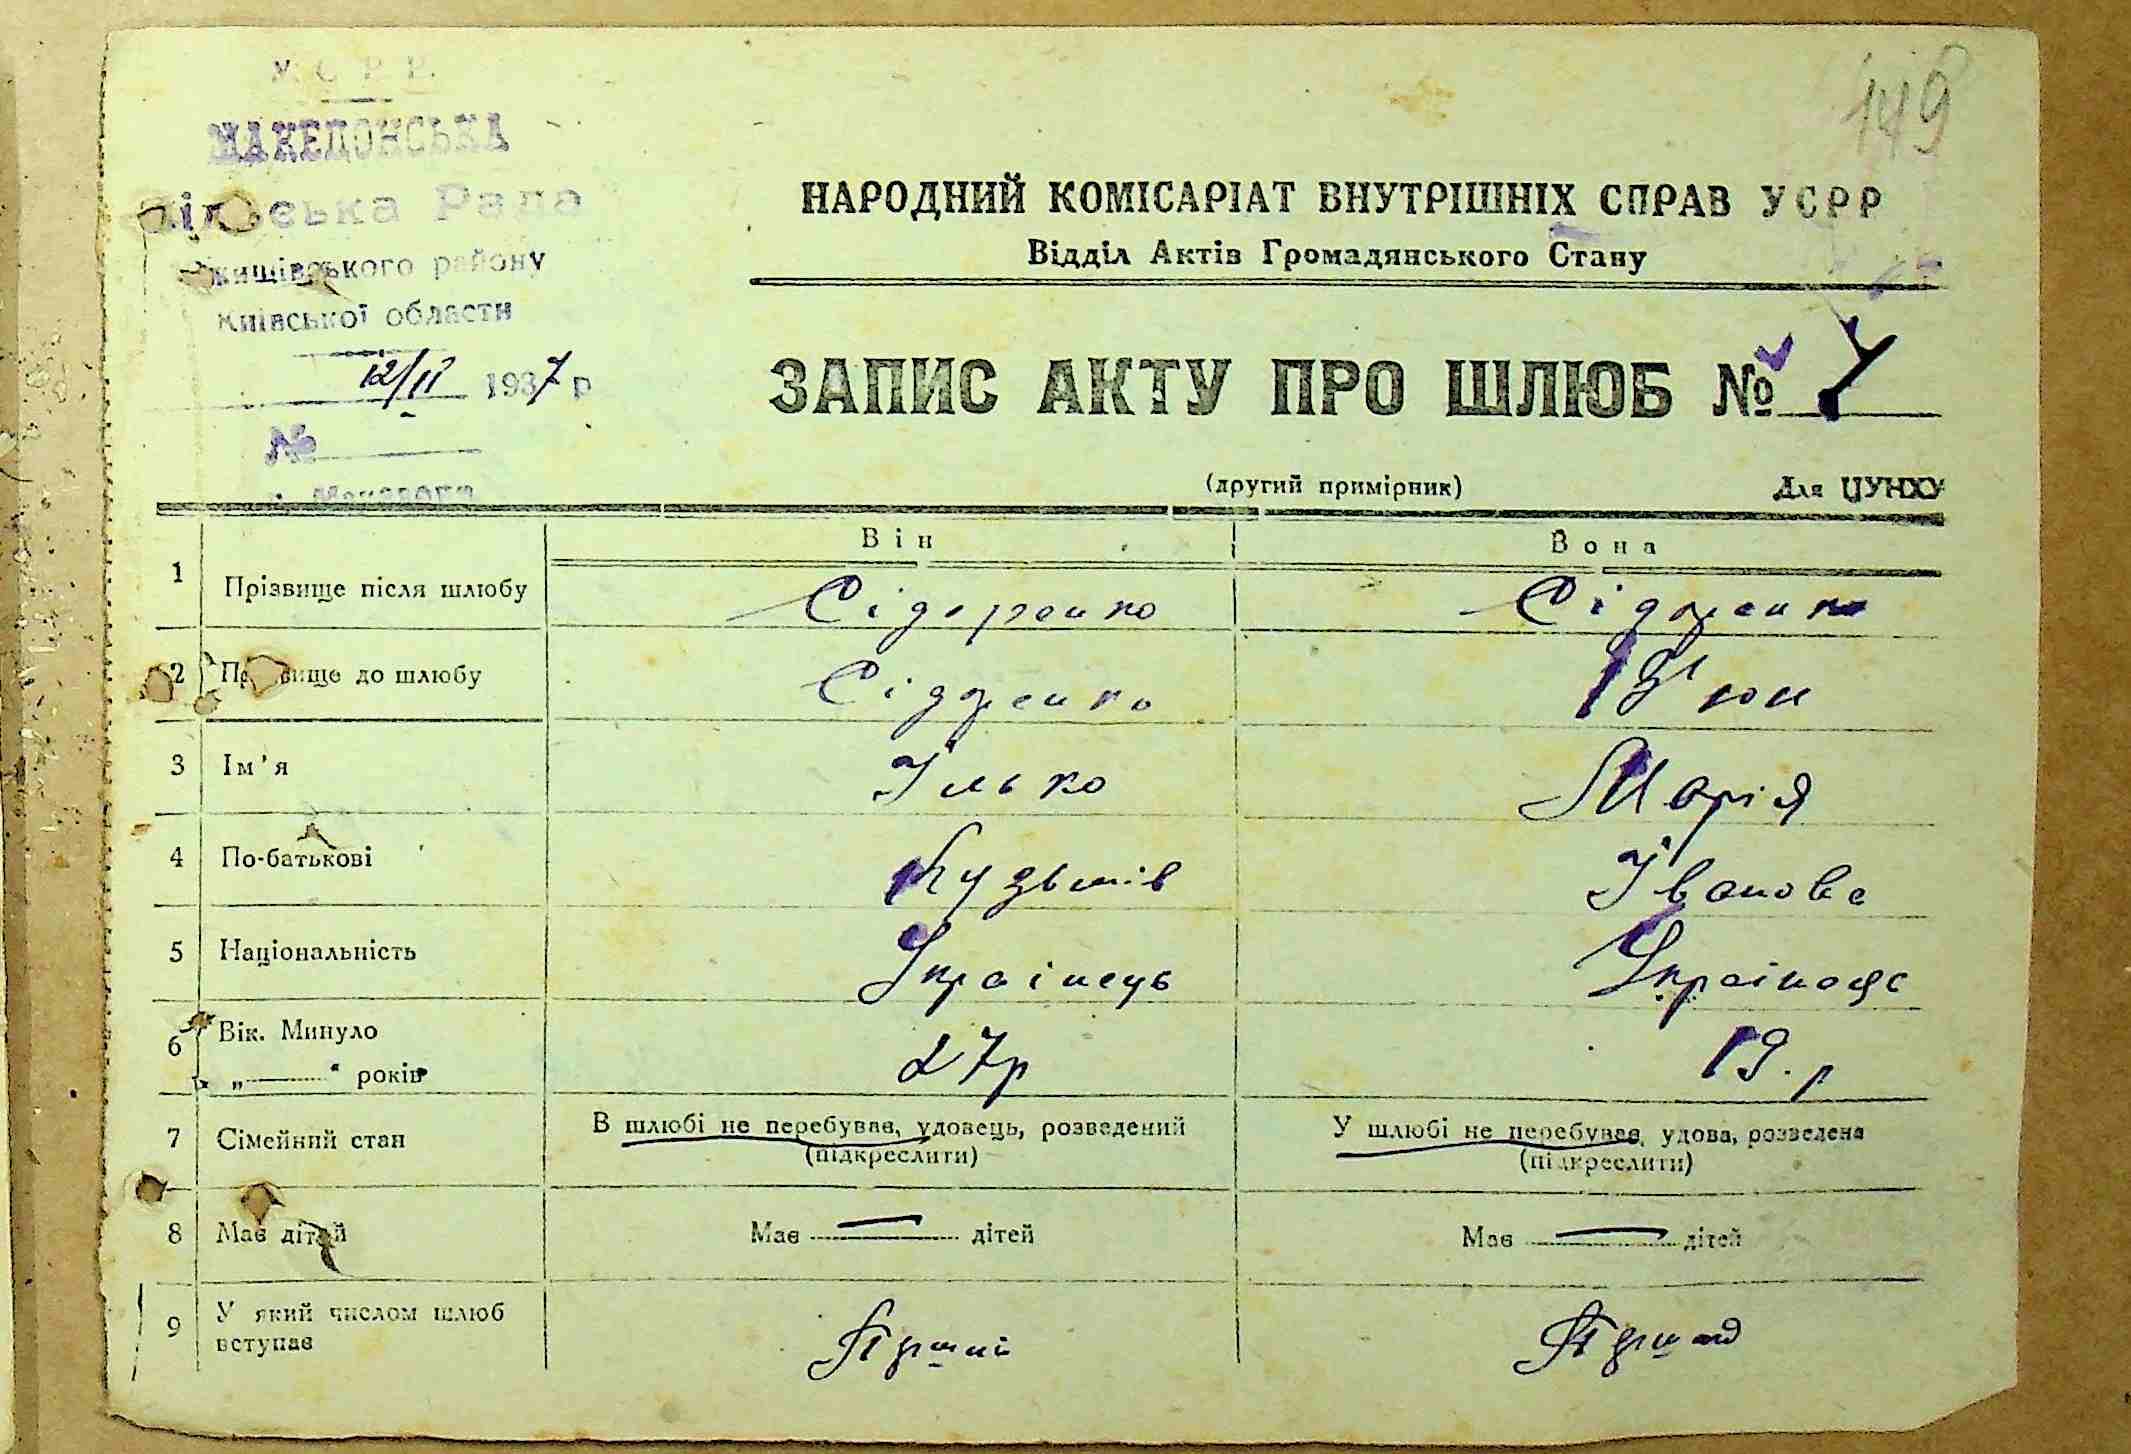 У. С. Р. Р.
МАКЕДОНСЬКА
Рада
району
Київської области
12/II 1937 р
№
149
НАРОДНИЙ КОМІСАРІАТ ВНУТРІШНІХ СПРАВ УСРР
Відділ Актів Громадянського Стану
ЗАПИС АКТУ ПРО ШЛЮБ №
(другий примірник) Для ЦУНХУ
Він Вона
1 Прізвище після шлюбу Сідоренко Сідоренко
2 до шлюбу Сідоренко
3 Ім'я Ілько Марія
4 По-батькові Кузьмів Іванова
5 Національність Українець Українка
6 Вік. Минуло 27р 19.р
„ “ років
7 Сімейний стан В шлюбі не перебував, удовець, розведений У шлюбі не перебував, удова, розведена
(підкреслити) (підкреслити)
8 Має дітей Має — дітей Має — дітей
9 У який числом шлюб
вступав Перший Перша